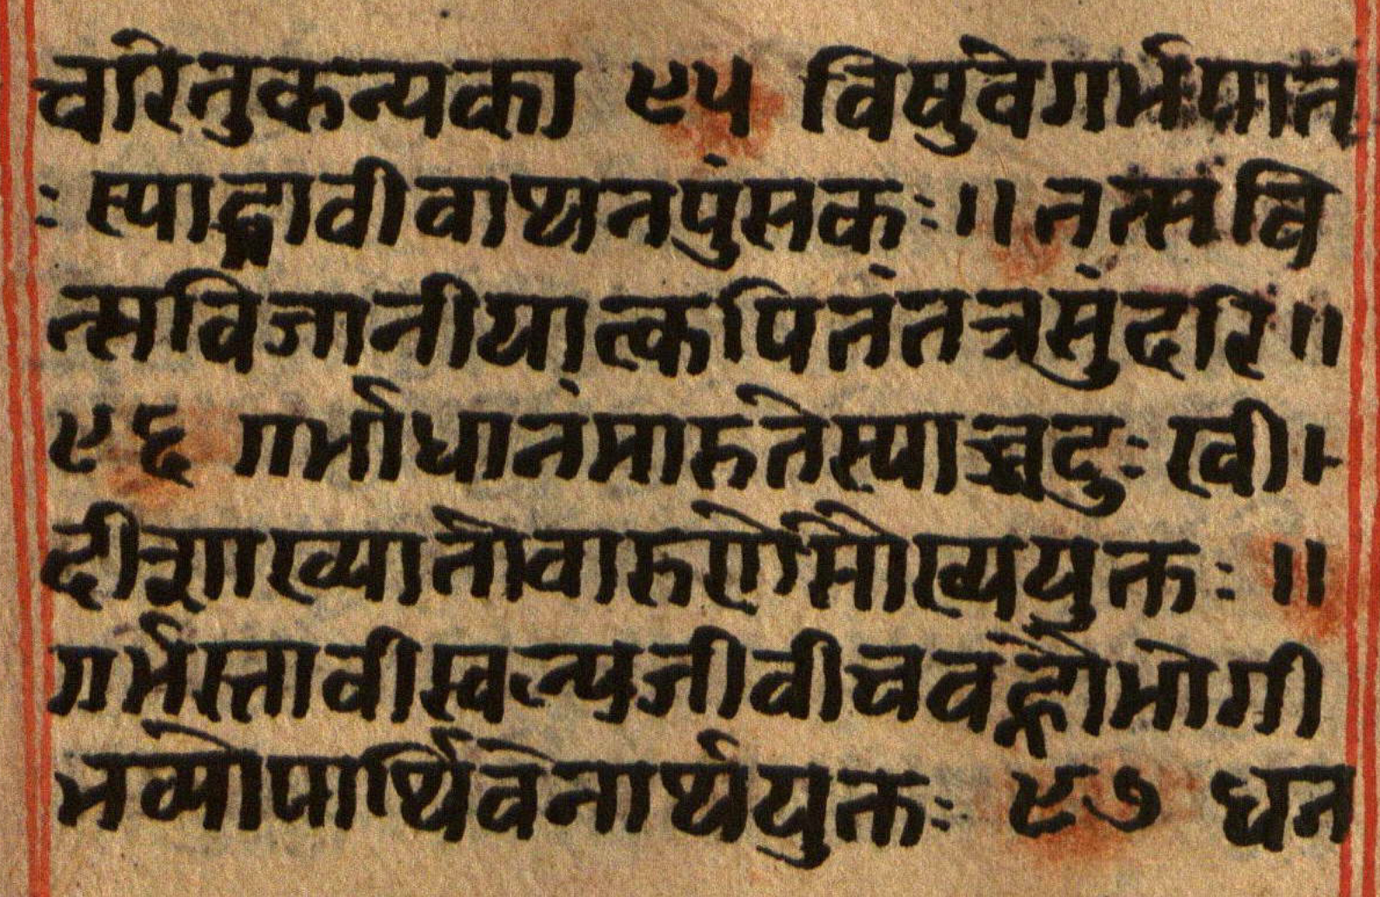 चरितुकन्यका ९५ विषुवेगर्भपात
ः स्याद्भावीवाथनपुंसकः ॥ तत्सवि
त्सविजानीयात्कपितंतत्रसुंदरि ॥
९६ गर्भाधानंमारुतेस्याच्चदुः खी ।
दीक्षाख्यातोवारुणेसौख्ययुक्तः ॥
गर्भस्तावीस्वल्पजीवीचवह्नौभोगी
भव्योपार्थिवेनार्थयुक्तः ९७ धन